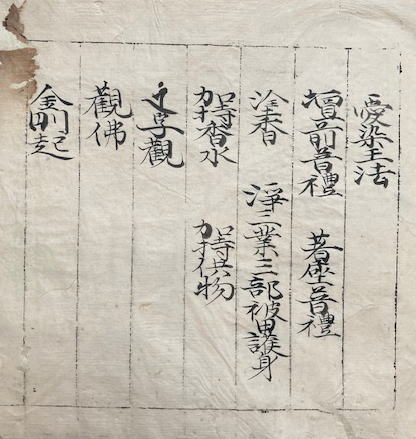 愛染王法
壇前普禮 著座普禮
塗香 淨三業三部被甲護身
加持香水 加持供物
文字觀
觀佛
金剛起